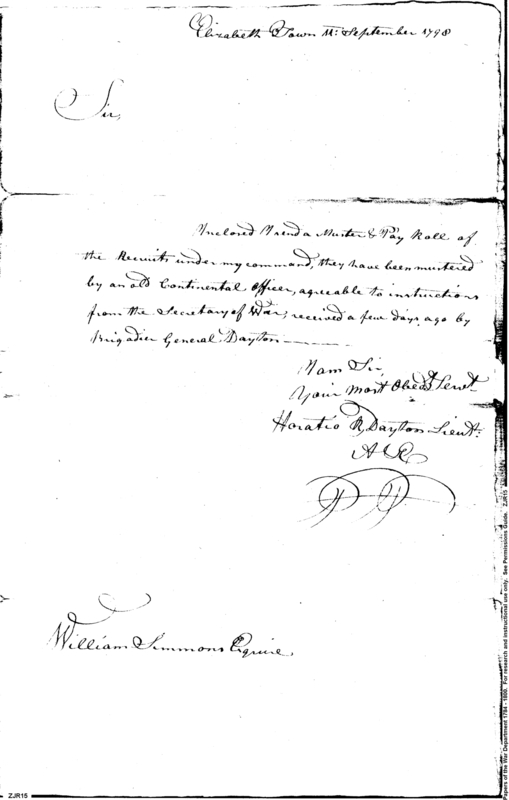 Elizabeth Town 11: September 1798
Sir,
Inclosed I send a Muster & Pay Roll of
the Recruits under my command, they have been mustered
by an old Continental Officer, agreable to instructions
from the Secretary of War, received a few days ago by
Brigadier General Dayton
I am Sir,
Your Most Obedt Servt
Horatio R Dayton Lieut:
William Simmons Esquire,
ZJR15
Papers of the War Department 1784 - 1800. For research and instructional use only. See Permissions Guide. ZJR15